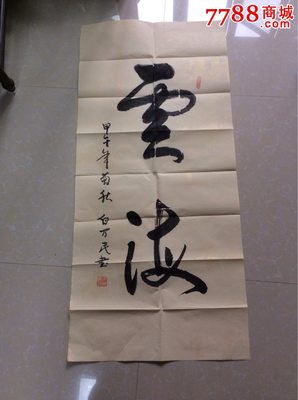 7788商城
雲海
甲午年菊秋 白万民書